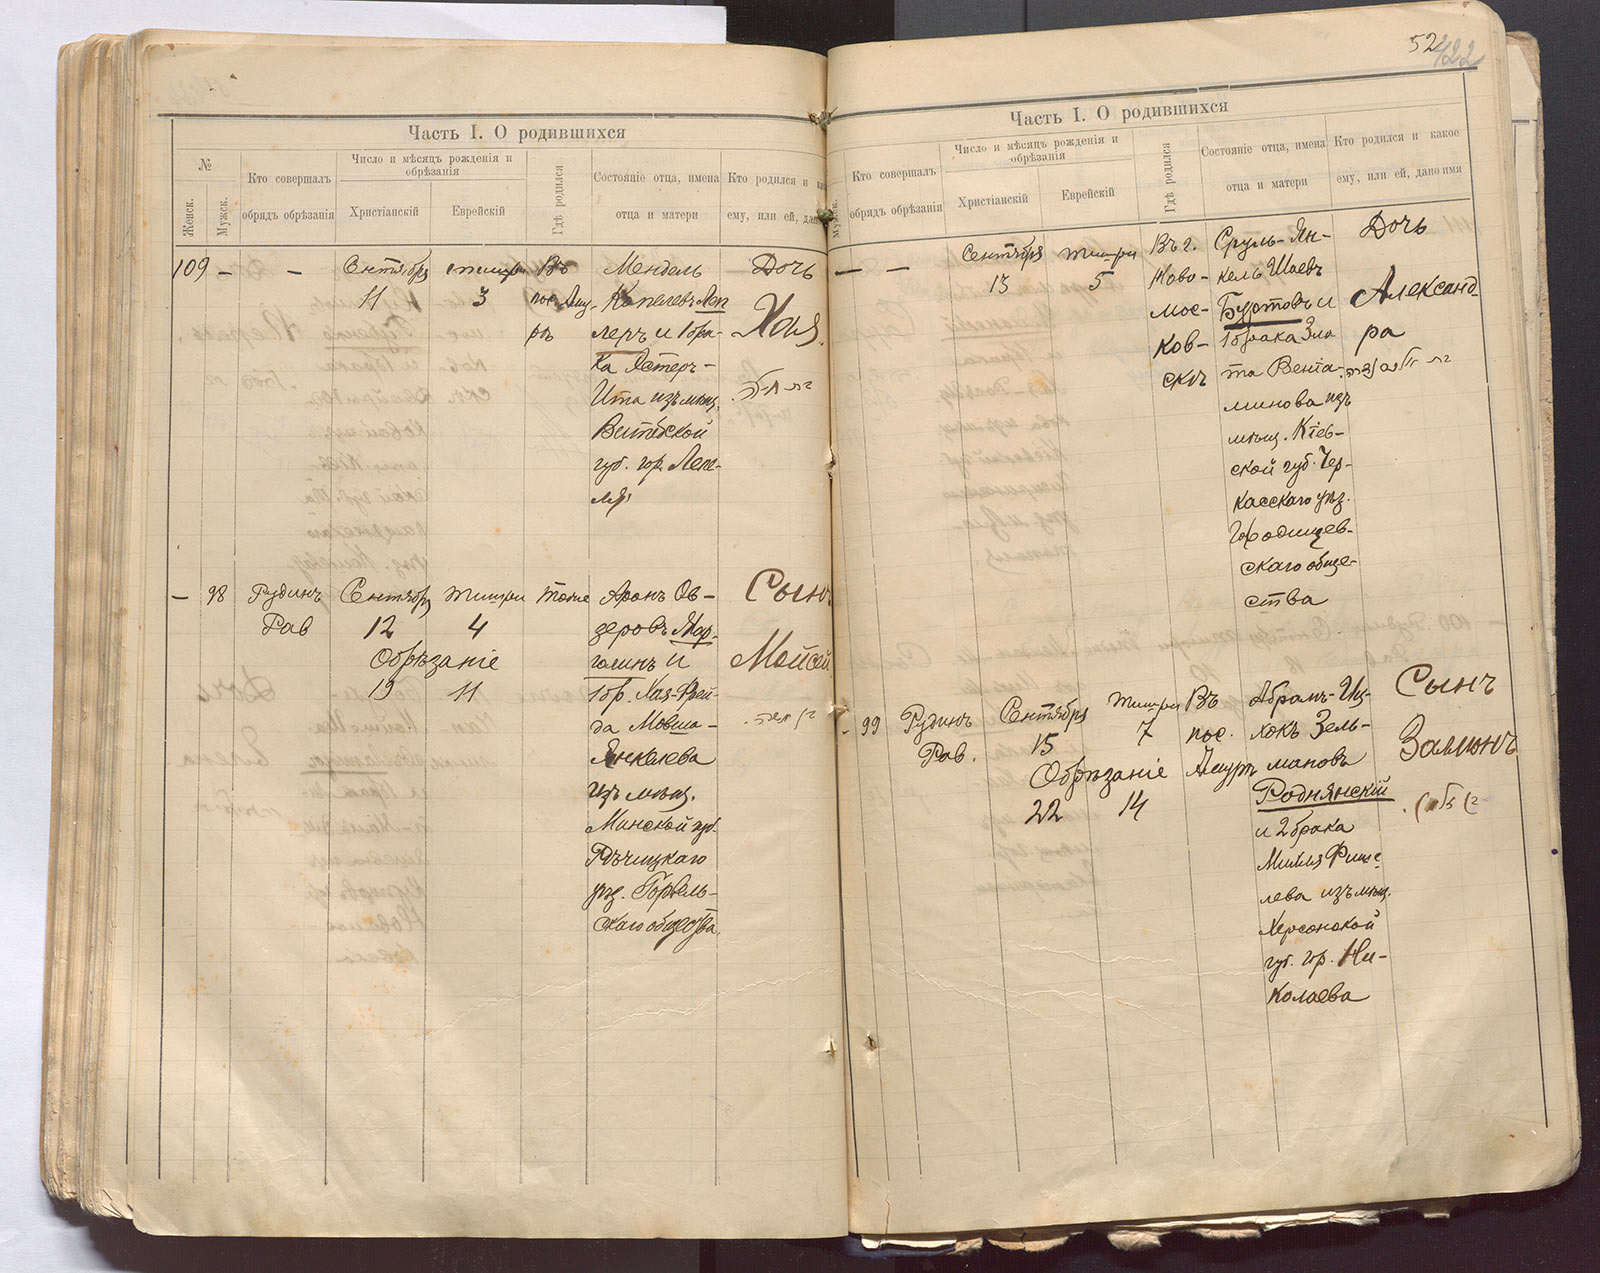 Часть I. О родившихся
№
Женск.
Мужск.
Кто совершалъ
обрядъ обрѣзанія
Число и мѣсяцъ рожденія и
обрѣзанія
Христіанскій
Еврейскій
Гдѣ родился
Состояніе отца, имена
отца и матери
Кто родился и
ему, или ей, дано
109 – –
Сентября
11
3
Въ
пос. Аму-
ръ
Мендель
Копелевъ Леп
леръ и 1 бра-
ка Эстеръ-
Ита изъ мѣщ.
Витебской
губ. гор. Лепе-
ля
Дочь
Хая
– 98
Рудинъ
Рав
Сентября
12
Тишри
4
Обрѣзаніе
19
11
тоже
Аронъ Ов-
зеровъ Мар-
голинъ и
1 бр. Хая-Фрей-
да Мовша-
Янкелева
изъ мѣщ.
Минской губ.
Рѣчицкаго
уѣз. Горваль-
скаго общества.
Сынъ
Мойсей
52
422
Часть I. О родившихся
Мужск.
Кто совершалъ
обрядъ обрѣзанія
Число и мѣсяцъ рожденія и
обрѣзанія
Христіанскій
Еврейскій
Гдѣ родился
Состояніе отца, имена
отца и матери
Кто родился и какое
ему, или ей, дано имя
– –
Сентября
13
Тишри
5
Въ г.
Ново-
мос-
ков-
скъ
Сруль-Ян-
кель Шаевъ
Буртовъ и
1 брака Зла
та Веніа-
минова изъ
мѣщ. Кіев-
ской губ. Чер-
касскаго уѣз.
Городищев-
скаго обще-
ства
Дочь
Александ-
ра
– 99
Рудинъ
Рав.
Сентября
15
Тишри
7
Обрѣзаніе
22
14
Въ
пос.
Амуръ
Абрамъ-Иц-
хокъ Зель-
мановъ
Роднянскій
и 2 брака
Фише
лева изъ мѣщ.
Херсонской
губ. гор. Ни-
колаева
Сынъ
Залмонъ